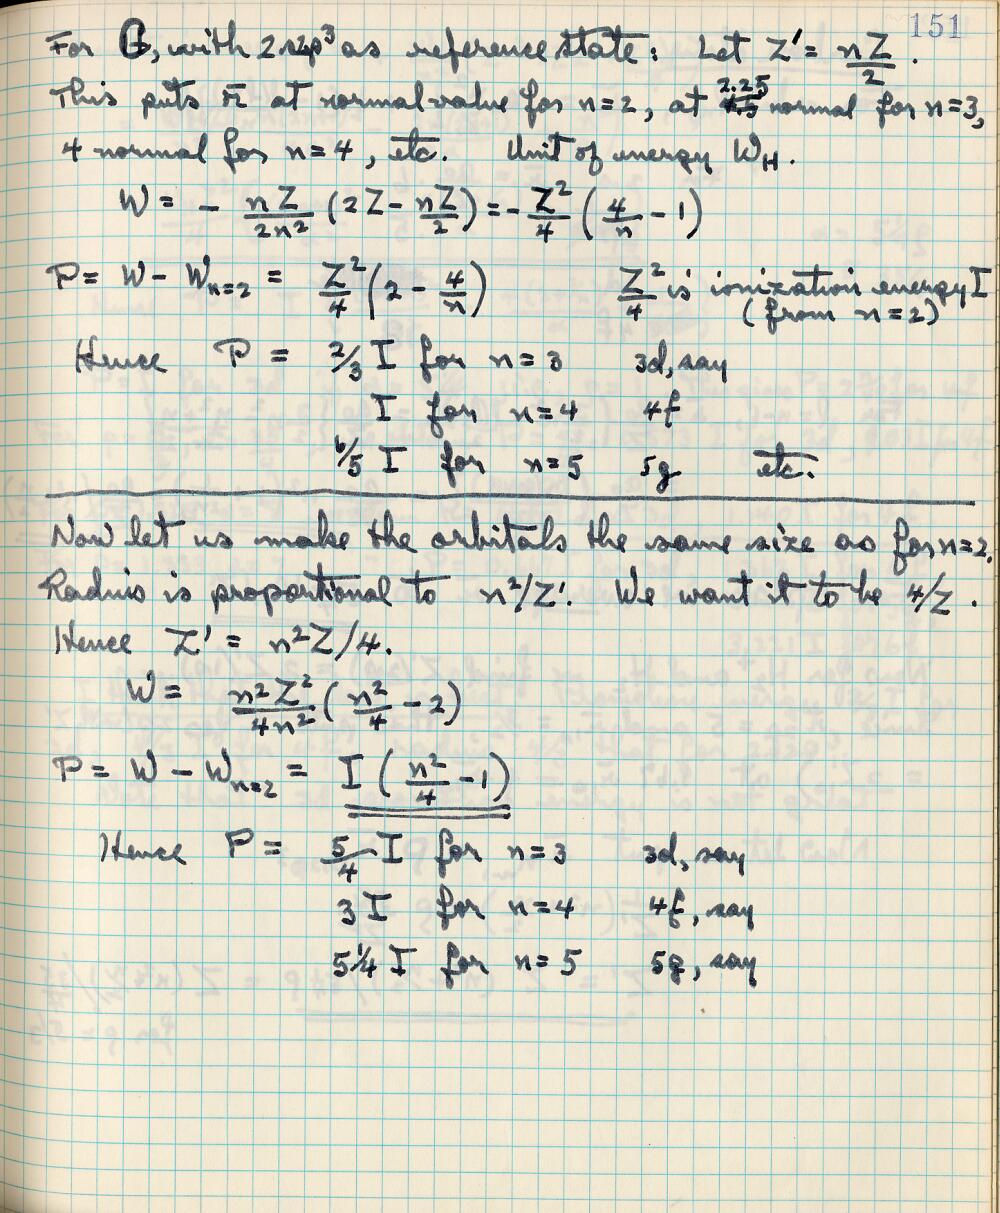 151
For C, with 2s2p³ as reference state: Let Z' = nZ/2.
This puts r̄ at normal value for n=2, at 2.25 normal for n=3,
4 normal for n=4, etc. Unit of energy W_H.
W = - nZ/2n² (2Z - nZ/2) = - Z²/4 (4/n - 1)
P = W - W_n=2 = Z²/4 (2 - 4/n) Z²/4 is ionization energy I
(from n=2)
Hence P = 2/3 I for n=3 3d, say
I for n=4 4f
6/5 I for n=5 5g etc.
Now let us make the orbitals the same size as for n=2.
Radius is proportional to n²/Z'. We want it to be 4/Z.
Hence Z' = n²Z/4.
W = n²Z²/4n² (n²/4 - 2)
P = W - W_n=2 = I (n²/4 - 1)
Hence P = 5/4 I for n=3 3d, say
3 I for n=4 4f, say
5 1/4 I for n=5 5g, say